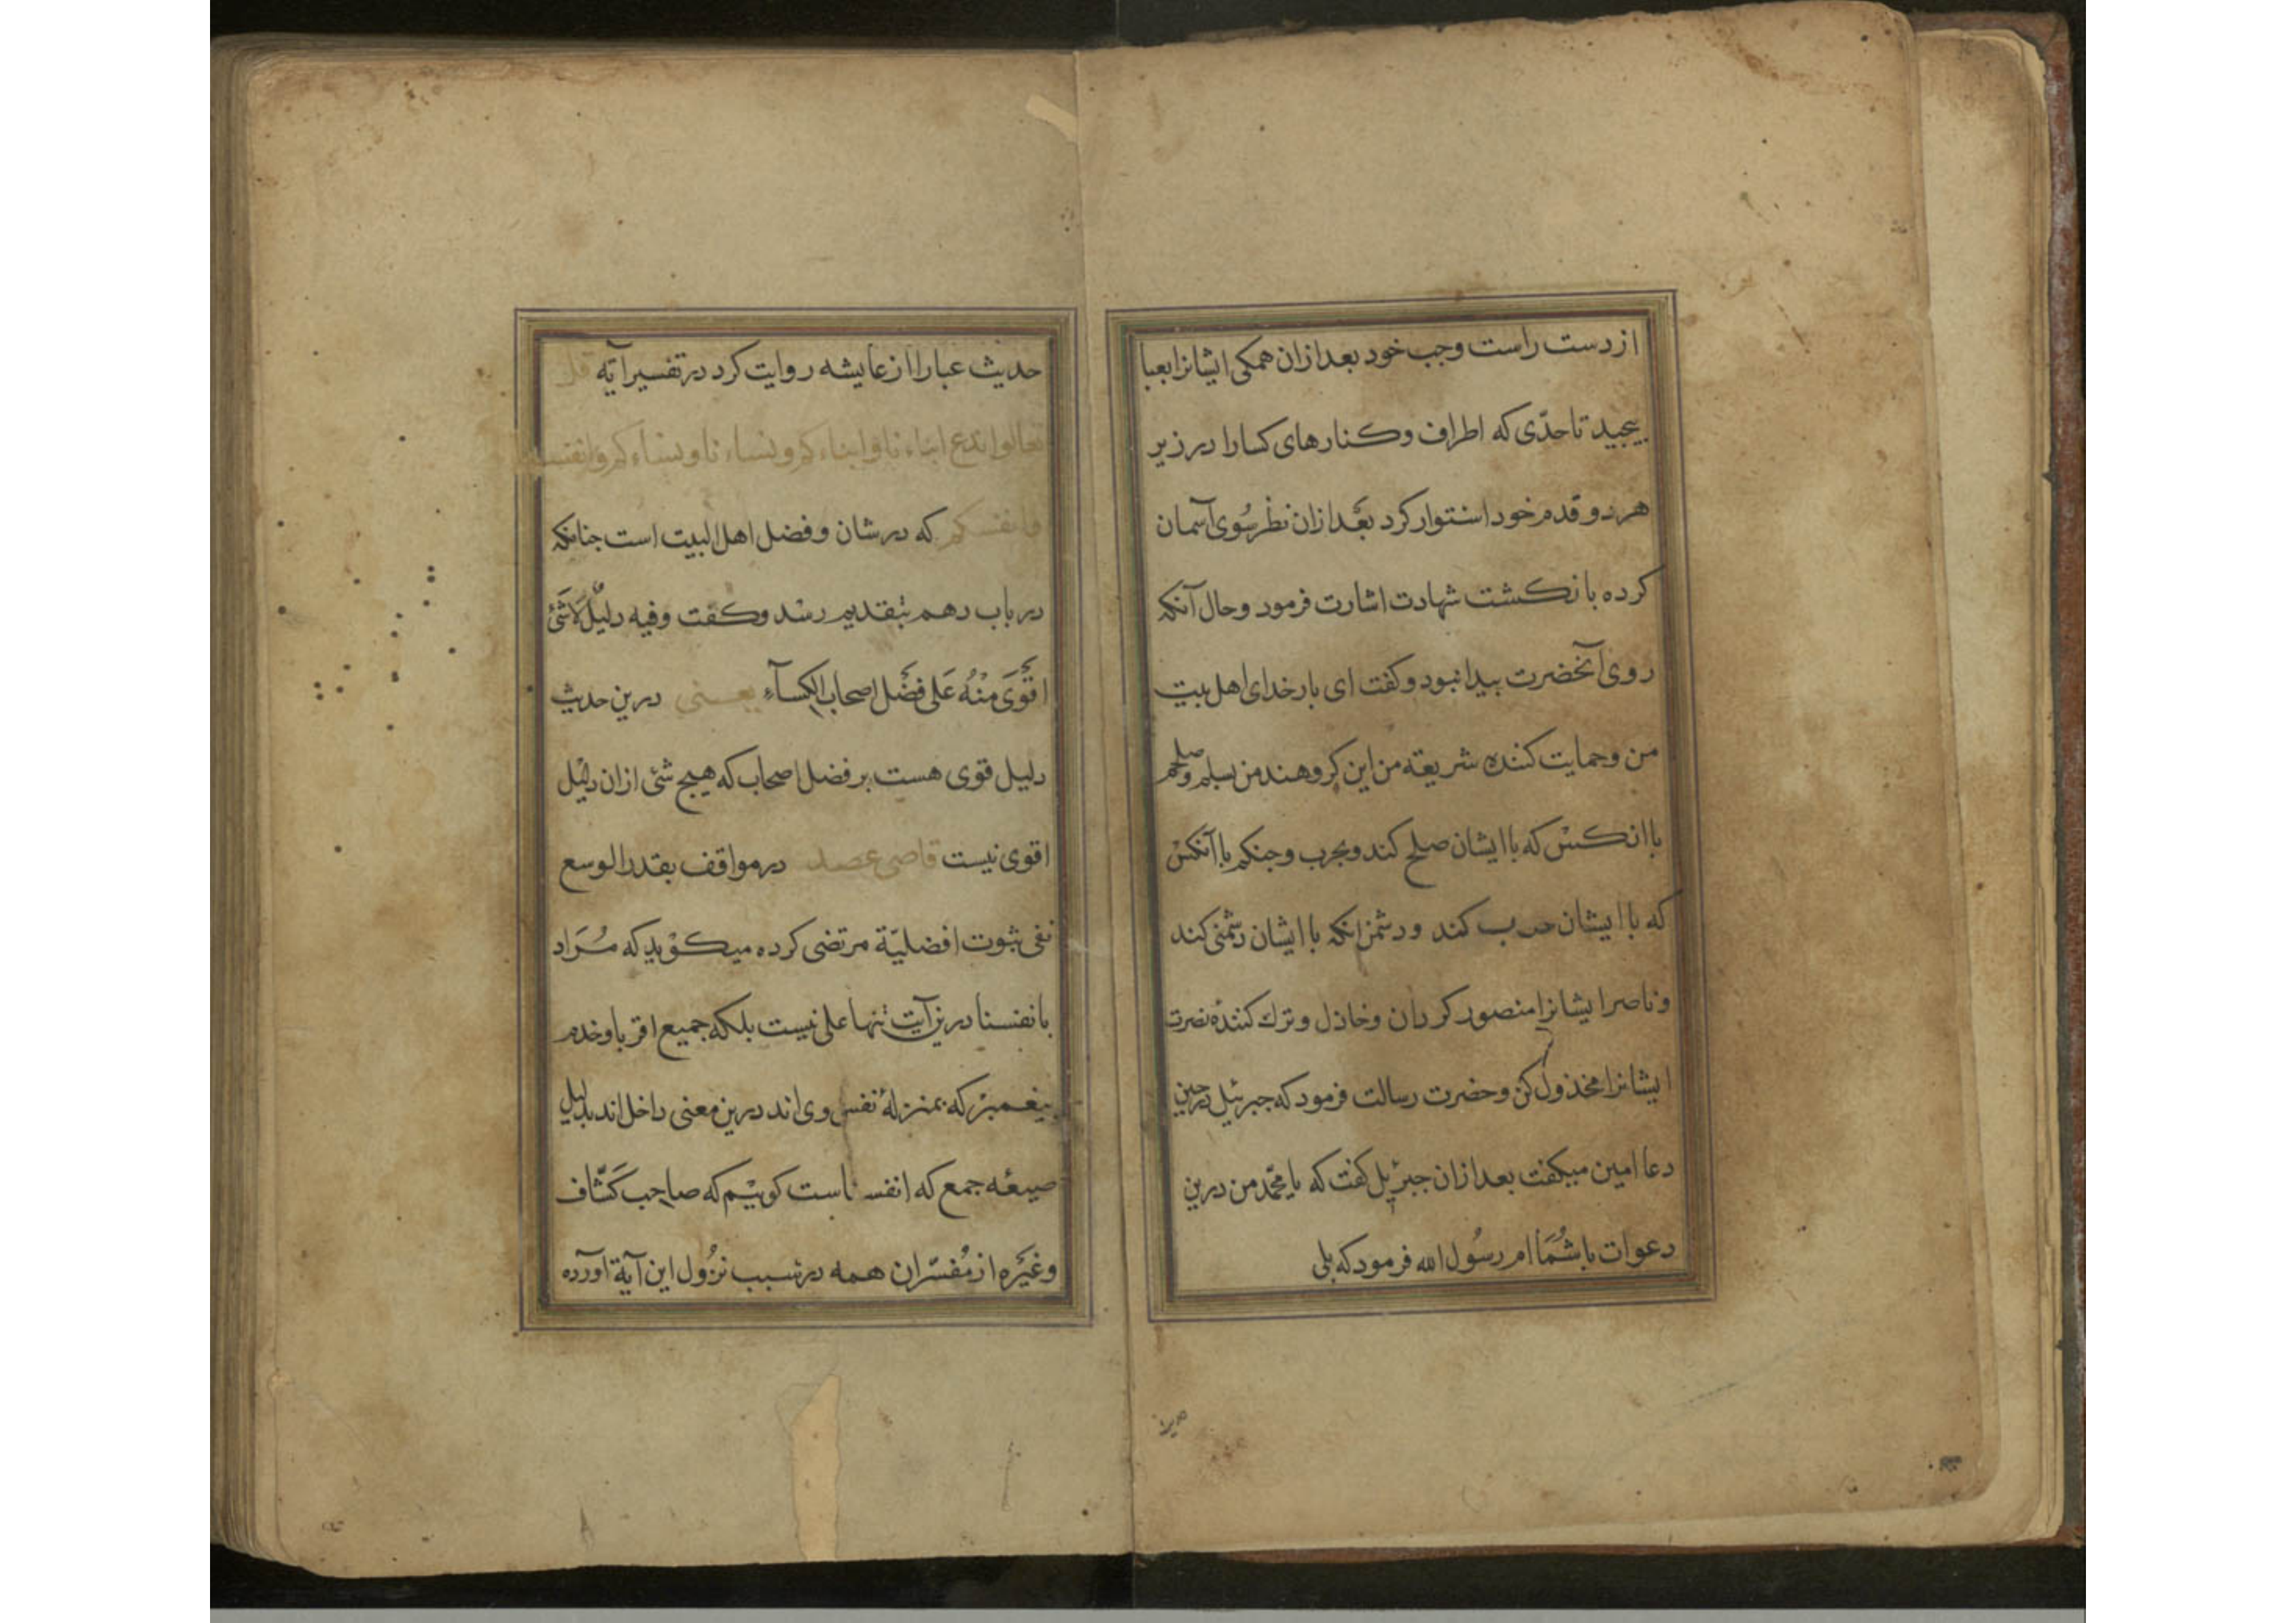 از دست راست وجب خود بعد ازان همکی ایشانرا بعبا
بیجید تا حدّی که اطراف وکنارهای کسارا در زیر
هر دو قدم خود استوار کرد بعد ازان نظر سُوی آسمان
کرده بانکشت شهادت اشارت فرمود وحال آنکه
روی آنحضرت بیدا نبود وکفت ای بار خدای اهل بیت
من وحمایت کننده شریعته من این کروهند من بسلم وصلحم
با انکسْ که با ایشان صلح کند وبحرب وجنکم با آنکسْ
که با ایشان حرب کند ودشمن انکه با ایشان دشمنی کند
وناصر ایشانرا منصور کردان وخاذل وترك کنندۀ نصرت
ایشانرا مخذول کن وحضرت رسالت فرمود که جبرئیل درحین
دعا امین میکفت بعد ازان جبرئیل کفت که یا محمّد من درین
دعوات با شُمَا ام رسُول الله فرمود که بلی
حدیث
حدیث عبارا از عایشه روایت کرد در تفسیر آیه قل
تعالوا ندع ابناءنا وابناءکم ونساءنا ونساءکم وانفسنا
وانفسکم که در شان وفضل اهل البیت است جنانکه
در باب دهم بتقدیم رسد وکفت وفیه دلیلٌ لَا شَئ
اقْوَی مِنْهُ عَلی فضْل اصحاب الکسآءِ یعنی درین حدیث
دلیل قوی هست بر فضل اصحاب که هیج شئ ازان دلیل
اقوی نیست قاضی عضد در مواقف بقدر الوسع
نفی ثبوت افضلیّة مرتضی کرده میکوید که مُرَاد
بانفسنا درین آیت تنها علی نیست بلکه جمیع اقربا وخدم
بیغمبر که بمنزلۀ نفس وی اند درین معنی داخل اند بدلیل
صیغه جمع که انفسنا است کوییم که صاحب کَشّاف
وغیَره از مُفسّران همه در سبب نزُول این آیة آورده